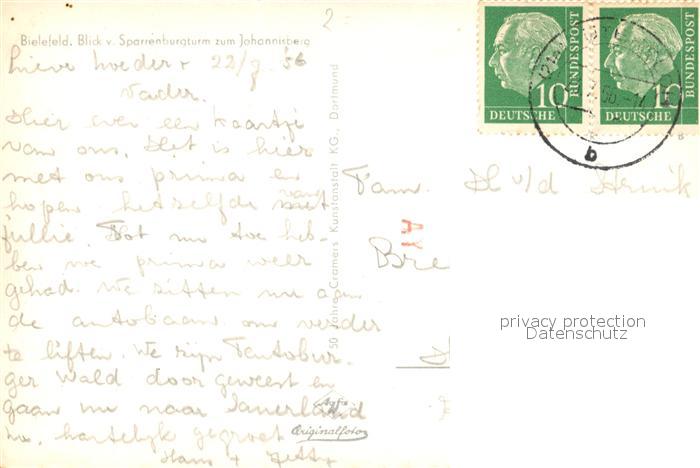 2-
Bielefeld. Blick v. Sparrenburgturm zum Johannisberg
Lieve moeder + 22/7 '56
Vader.
Hier even een kaartje
van ons. Het is hier
met ons prima en
hopen hetzelfde van
jullie. Tot nu toe heb-
ben we prima weer
gehad. We zitten nu aan
de autobaan om verder
te liften. We zijn Teutobur-
ger Wald door geweest en
gaan nu naar Sauerland
hartelijk gegroet
Hans + Jetty
50 Jahre Cramers Kunstanstalt KG., Dortmund
AY
Agfa
Originalfoto
10
DEUTSCHE
BUNDESPOST
10
DEUTSCHE
BUNDESPOST
b
Fam. H v/d
Bre
privacy protection
Datenschutz